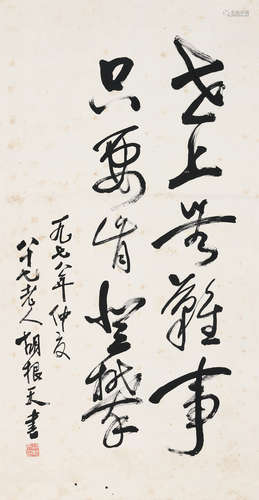 世上无难事
只要肯登攀
一九七八年仲夏
八十七老人胡根天书